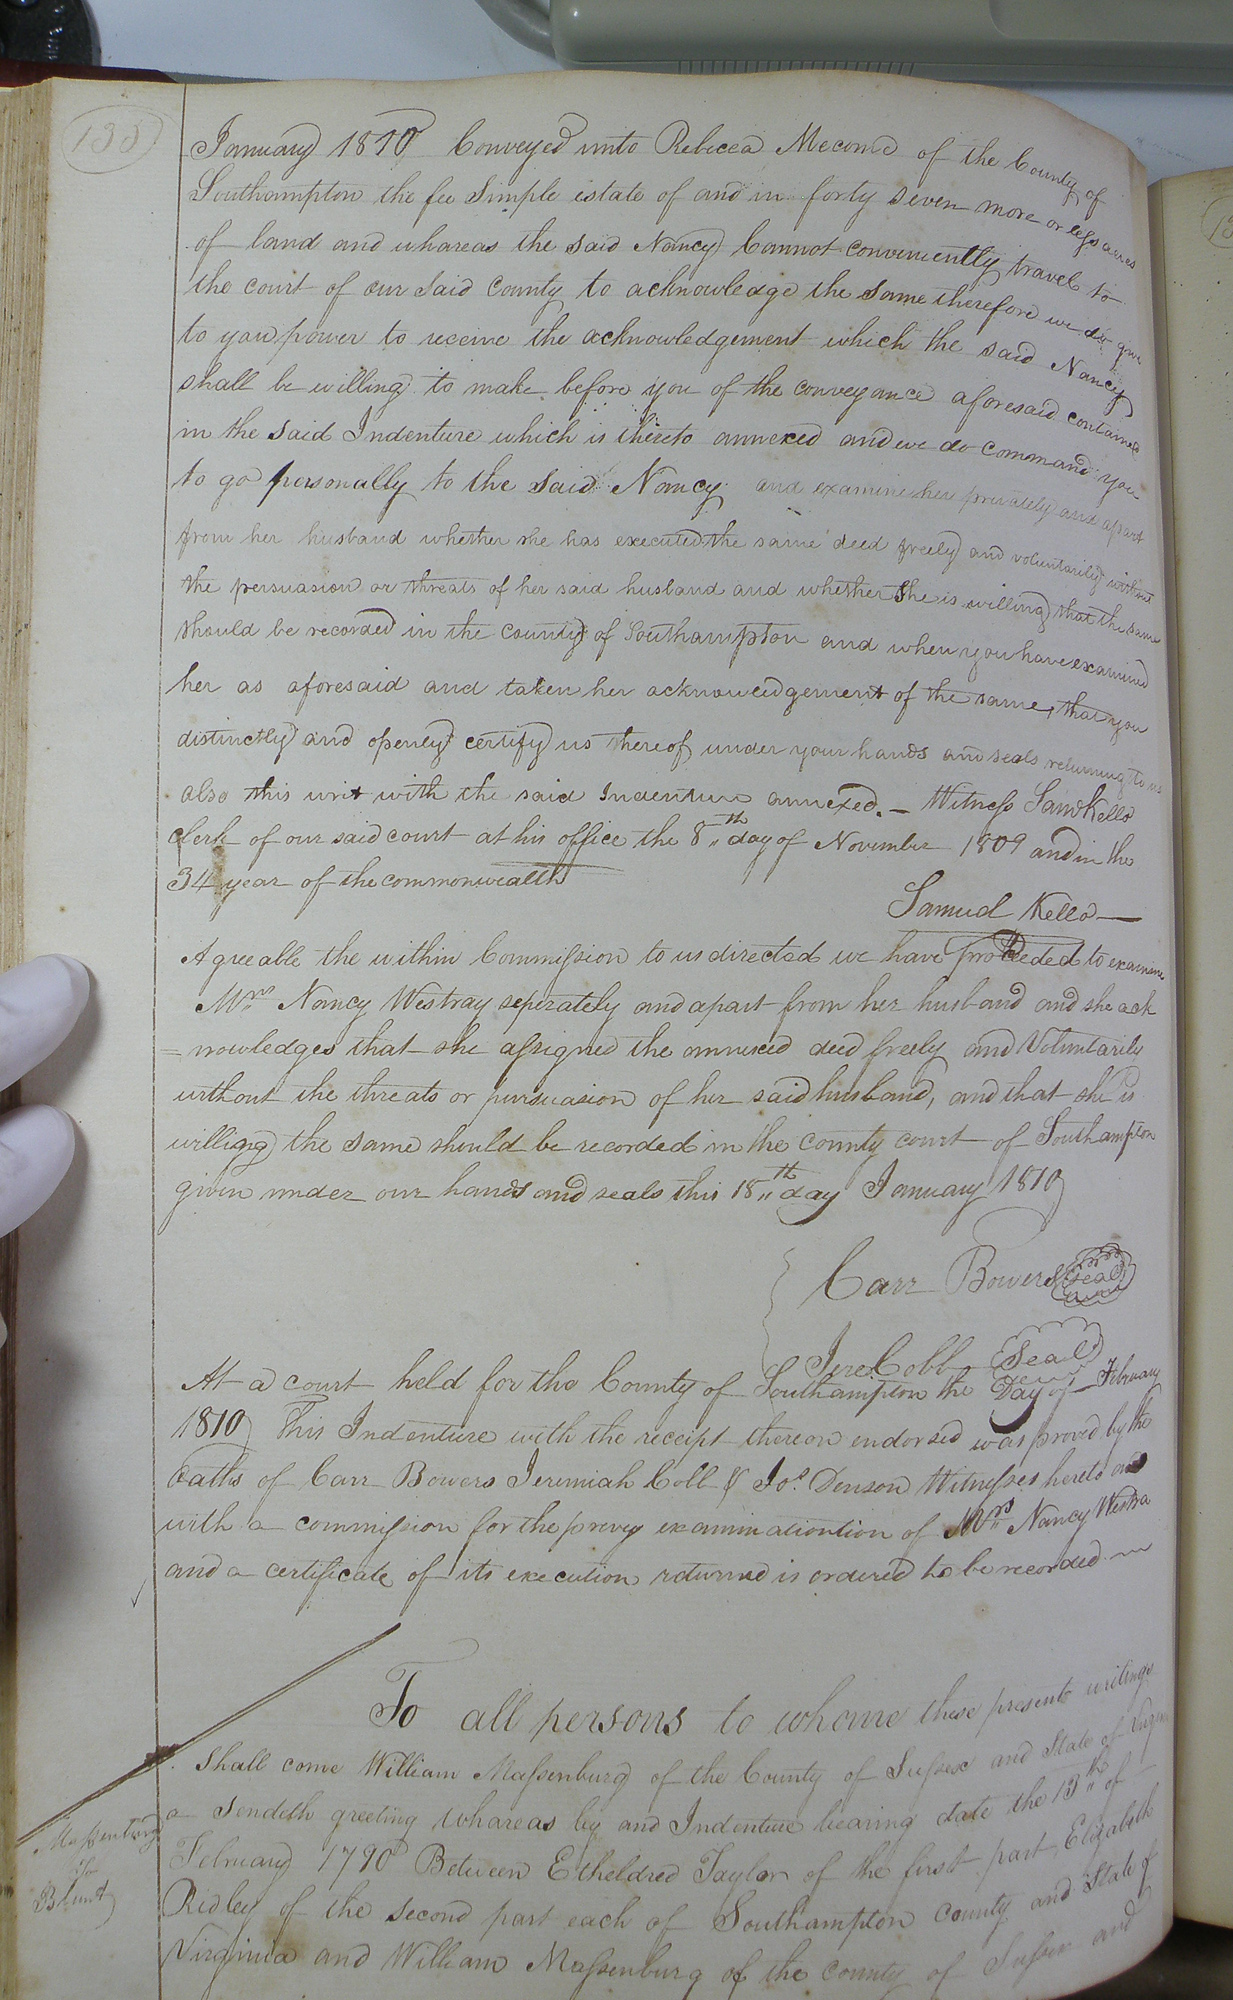 135
January 1810 Conveyed unto Rebecca Mecome of the County of
Southampton the fee Simple estate of and in forty seven more or less acres
of land and whareas the said Nancy Cannot conveniently travel to
the court of our said County to acknowledge the same therefore we do give
to you power to receive the acknowledgement which the said Nancy
shall be willing to make before you of the conveyance aforesaid contained
in the said Indenture which is thereto annexed and we do command you
to go personally to the said Nancy and examine her privately and apart
from her husband whether she has executed the same deed freely and voluntarily without
the persuasion or threats of her said husband and whether She is willing that the same
should be recorded in the county of Southampton and when you have examined
her as aforesaid and taken her acknowledgement of the same, that you
distinctly and openly certify us thereof under your hands and seals returning to us
also this writ with the said Indenture annexed. – Witness Saml Kello
clerk of our said court at his office the 8th day of November 1809 and in the
34 year of the commonwealth
Samuel Kello
Agreeable the within Commission to us directed we have proceeded to examine
Mrs Nancy Westray seperately and apart from her husband and she ack
=nowledges that she assigned the annexed deed freely and Voluntarily
without the threats or pursuasion of her said husband, and that she is
willing the same should be recorded in the county court of Southampton
given under our hands and seals this 18th day January 1810
Carr Bowers Seal
Jere Cobb Seal
At a court held for the County of Southampton the Day of February
1810 This Indenture with the receipt thereon endorsed was proved by the
Oaths of Carr Bowers Jeremiah Cobb & Jos. Denson Witnesses hereto and
with a commission for the provey examinationtion of Mrs Nancy Westra
and a certificate of its execution returned is ordered to be recorded
To all persons to whome these presents writings
shall come William Massenburg of the County of Sussex and State of Virgini
a Sendeth greeting whareas by and Indenture bearing date the 13th of
Massenburg
to
Blunt
February 1790 Between Etheldred Taylor of the first part Elizabeth
Ridley of the second part each of Southampton county and State of
Virginia and William Massenburg of the county of Sussex and